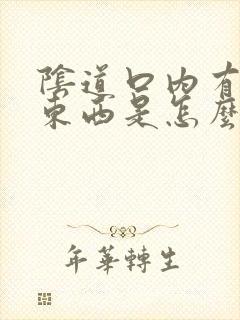 陰道口內有
東西是怎麼
年華轉生